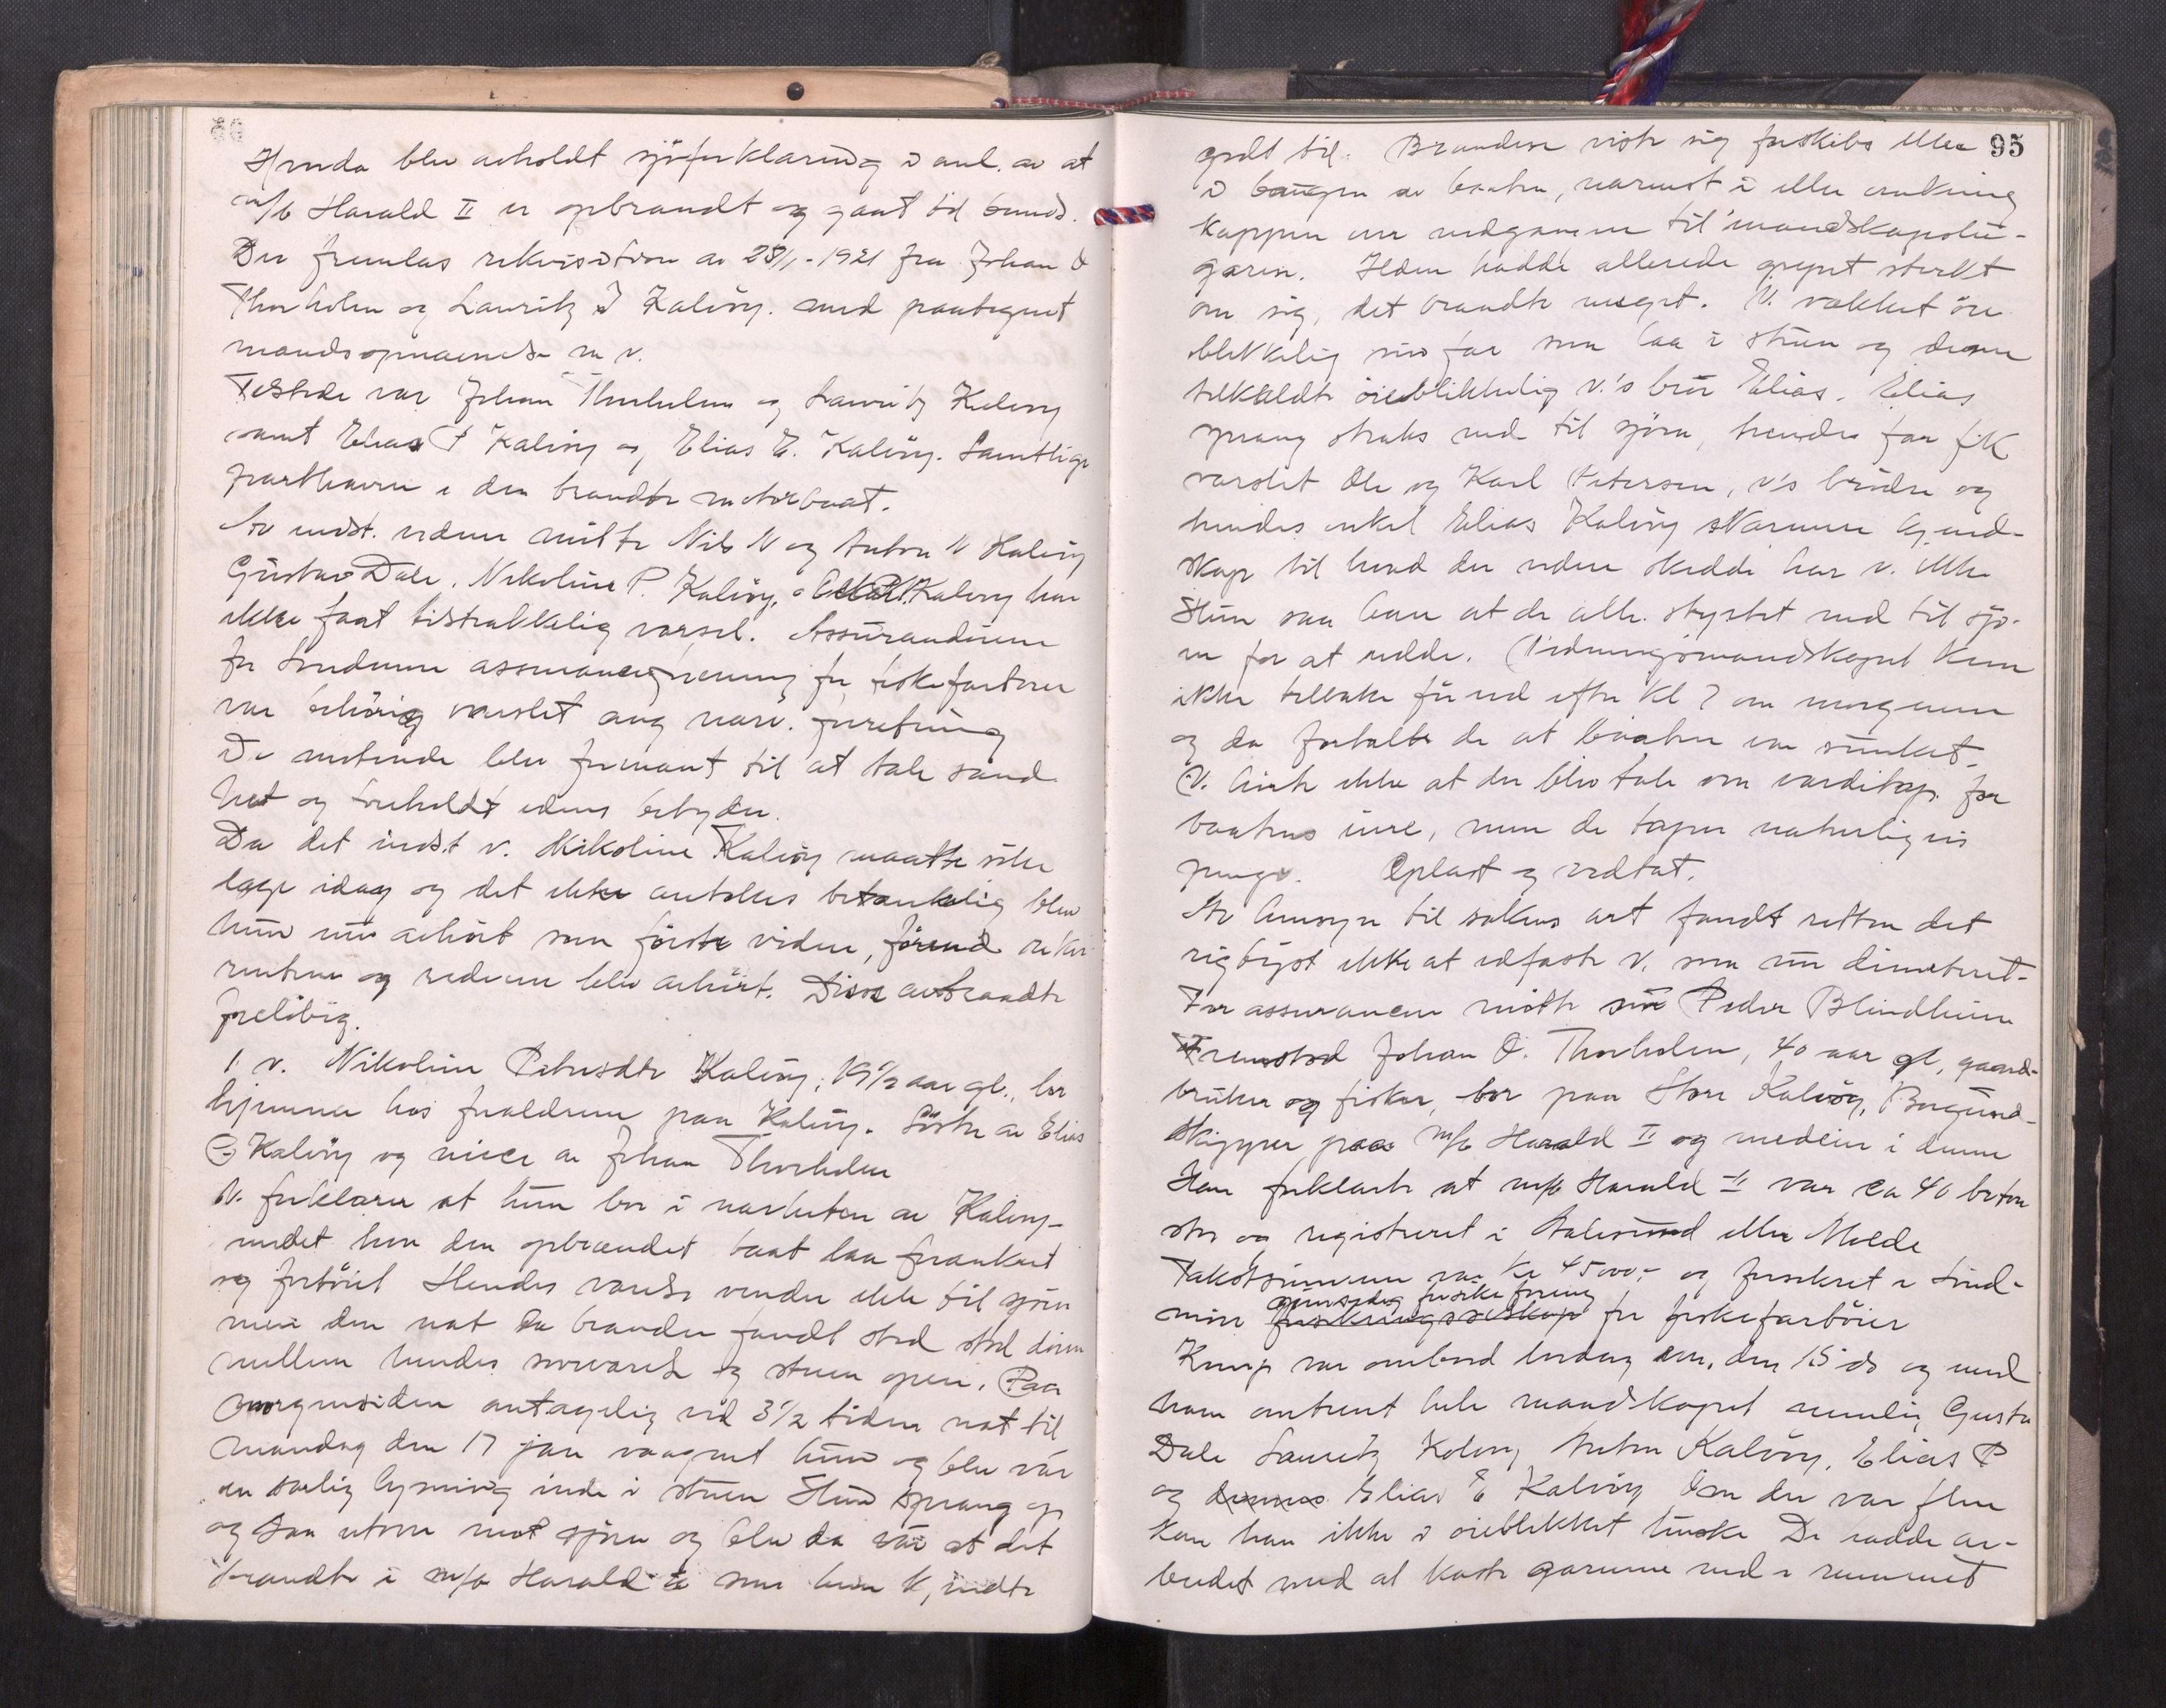 Hvorda blev avholdt sjøforklaring i anl. av at
m/b Harald II er opbrandt og gaat til bunds.
Der fremlas rekvisition av 28/1-1921 fra Johan O
Thorholm og Lauritz I Kalvøy. med paategnet
mandsopnævnelse m v.
Tilstede var Johan Thorholm og Lauritz Kalvøy
samt Elias P Kalvøy og Elias E. Kalvøy. Samtlige
parthavere i den brandte motorbaat.
Av indst. vidner møtte Nils N og Anton N Kalvøy
Gustav Dale. Nikoline P. Kalvøy, Kalvøy har
ikke faat tilstrækkelig varsel. Assurandørene
for Søndmøre assuranceforening for fiskefartøier
var behørig varslet ang nærv. forretning
De møtende blev formant til at tale sand-
het og foreholdt edens betyden.
Da det indst v. Nikoline Kalvøy maatte søke
læge idag og det ikke antokes betænkelig blev
hun nu avhørt som første vidne, førend rekvi-
rentene og rederne blev avhørt. Disse avtraadte
foreløbig.
1 v. Nikoline Petersdtr Kalvøy, 19 1/2 aar gl., bor
hjemme hos forældrene paa Kalvøy. Søster av Elias
P Kalvøy og niece av Johan Thorholm
V. forklarer at hun bor i nærheten av Kalvøy-
sundet hvor den opbrændte baat laa forankret
og fortøiet Hendes værelse vender ikke til sjøen
men den nat da branden fandt sted stod døren
mellem hendes soveværelse og stuen open. Paa
morgensiden antagelig ved 3 1/2 tiden nat til
mandag den 17 jan vaagnet hun og blev var
en særlig lysning inde i stuen Hun sprang op
og saa utover mot sjøen og blev da var at det
brandte i m/b Harald II som hun kjendte
godt til. Branden viste sig forskibs eller 95
i baugen av baaten, nærmest i eller omkring
kappen over nedgangen til mandskapslu-
garen. Ilden hadde allerede grepet sterkt
om sig, det brandte meget. V. vækket øie-
blikkelig sin far som laa i stuen og denne
tilkaldte øieblikkelig v.'s bror Elias. Elias
sprang straks ned til sjøen, hendes far fik
varslet Ole og Karl Petersen, v's brødre og
hendes onkel Elias Kalvøy Nærmere kjend-
skap til hvad der videre skedde har v. ikke
Hun saa bare at de alle styrtet ned til sjø-
en for at redde. (Redningsmandskapet kom
ikke tilbake før ved efter kl 7 om morgenen
og da fortalte de at baaten var sunket.
V. hørte ikke at der blev tale om værditap for
baatens eiere, men de taper naturligvis
penge. Oplæst og vedtat.
Av hensyn til sakens art fandt retten det
rigtigst ikke at edfæste v. som nu dimitert-
For assurancen møtte nu Peder Blindheim
Fremstod Johan O. Thorholm, 40 aar gl, gaard-
bruker og fisker, bor paa Store Kalvøy, Borgund-
Skipper paa m/b Harald II og medeier i denne
Han forklarte at m/b Harald II var ca 40 brtons
stor og registreret i Aalesund eller Molde
Takstsummen var kr 45000,- og forsikret i Sønd-
gjensidig forsikr. forening
møre forsikringsselskap for fiskefartøier
Komp var ombord lørdag den 15 ds og med
ham omtrent hele mandskapet nemlig Gustav
Dale Lauritz Kalvøy Anton Kalvøy, Elias P
og Elias E Kalvøy Om der var flere
kan han ikke i øieblikket huske De hadde ar-
beidet med at kaste garnene ned i rummet